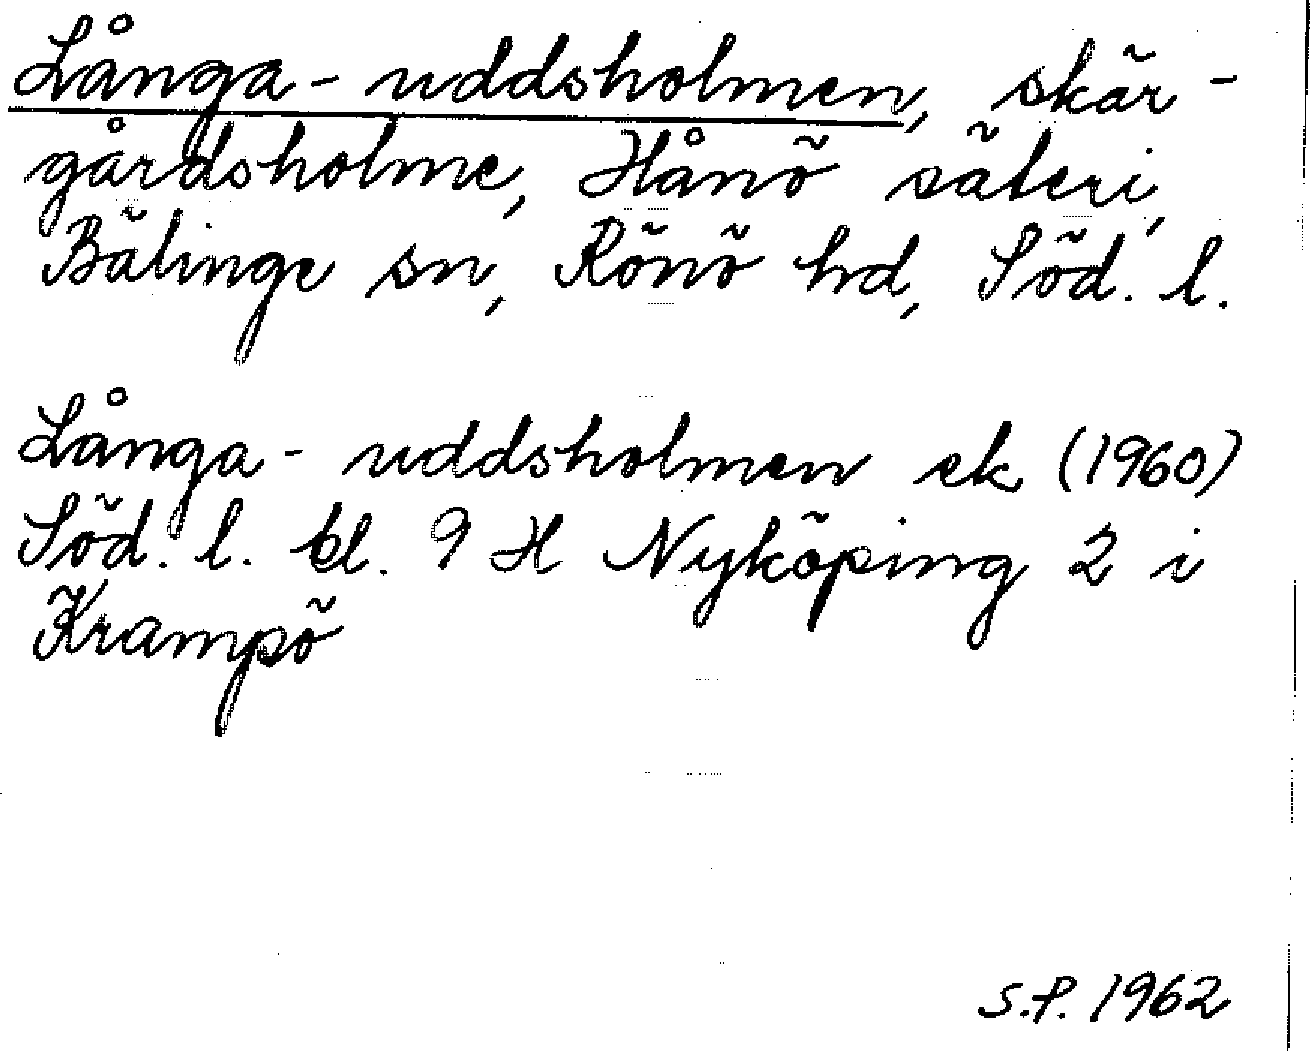 Långa-uddsholmen, skär-
gårdsholme, Hånö säteri,
Bälinge sn, Rönö hd, Söd. l.
Långa-uddsholmen ek (1960)
Söd. l. bl. 9 H Nyköping 2 i
Krampö
S.P. 1962